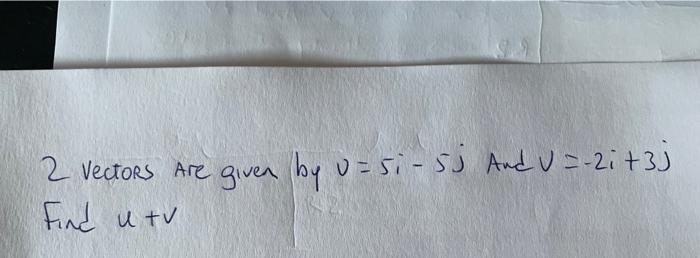 2 Vectors Are given by U = 5i - 5j And V = -2i + 3j
Find u + v